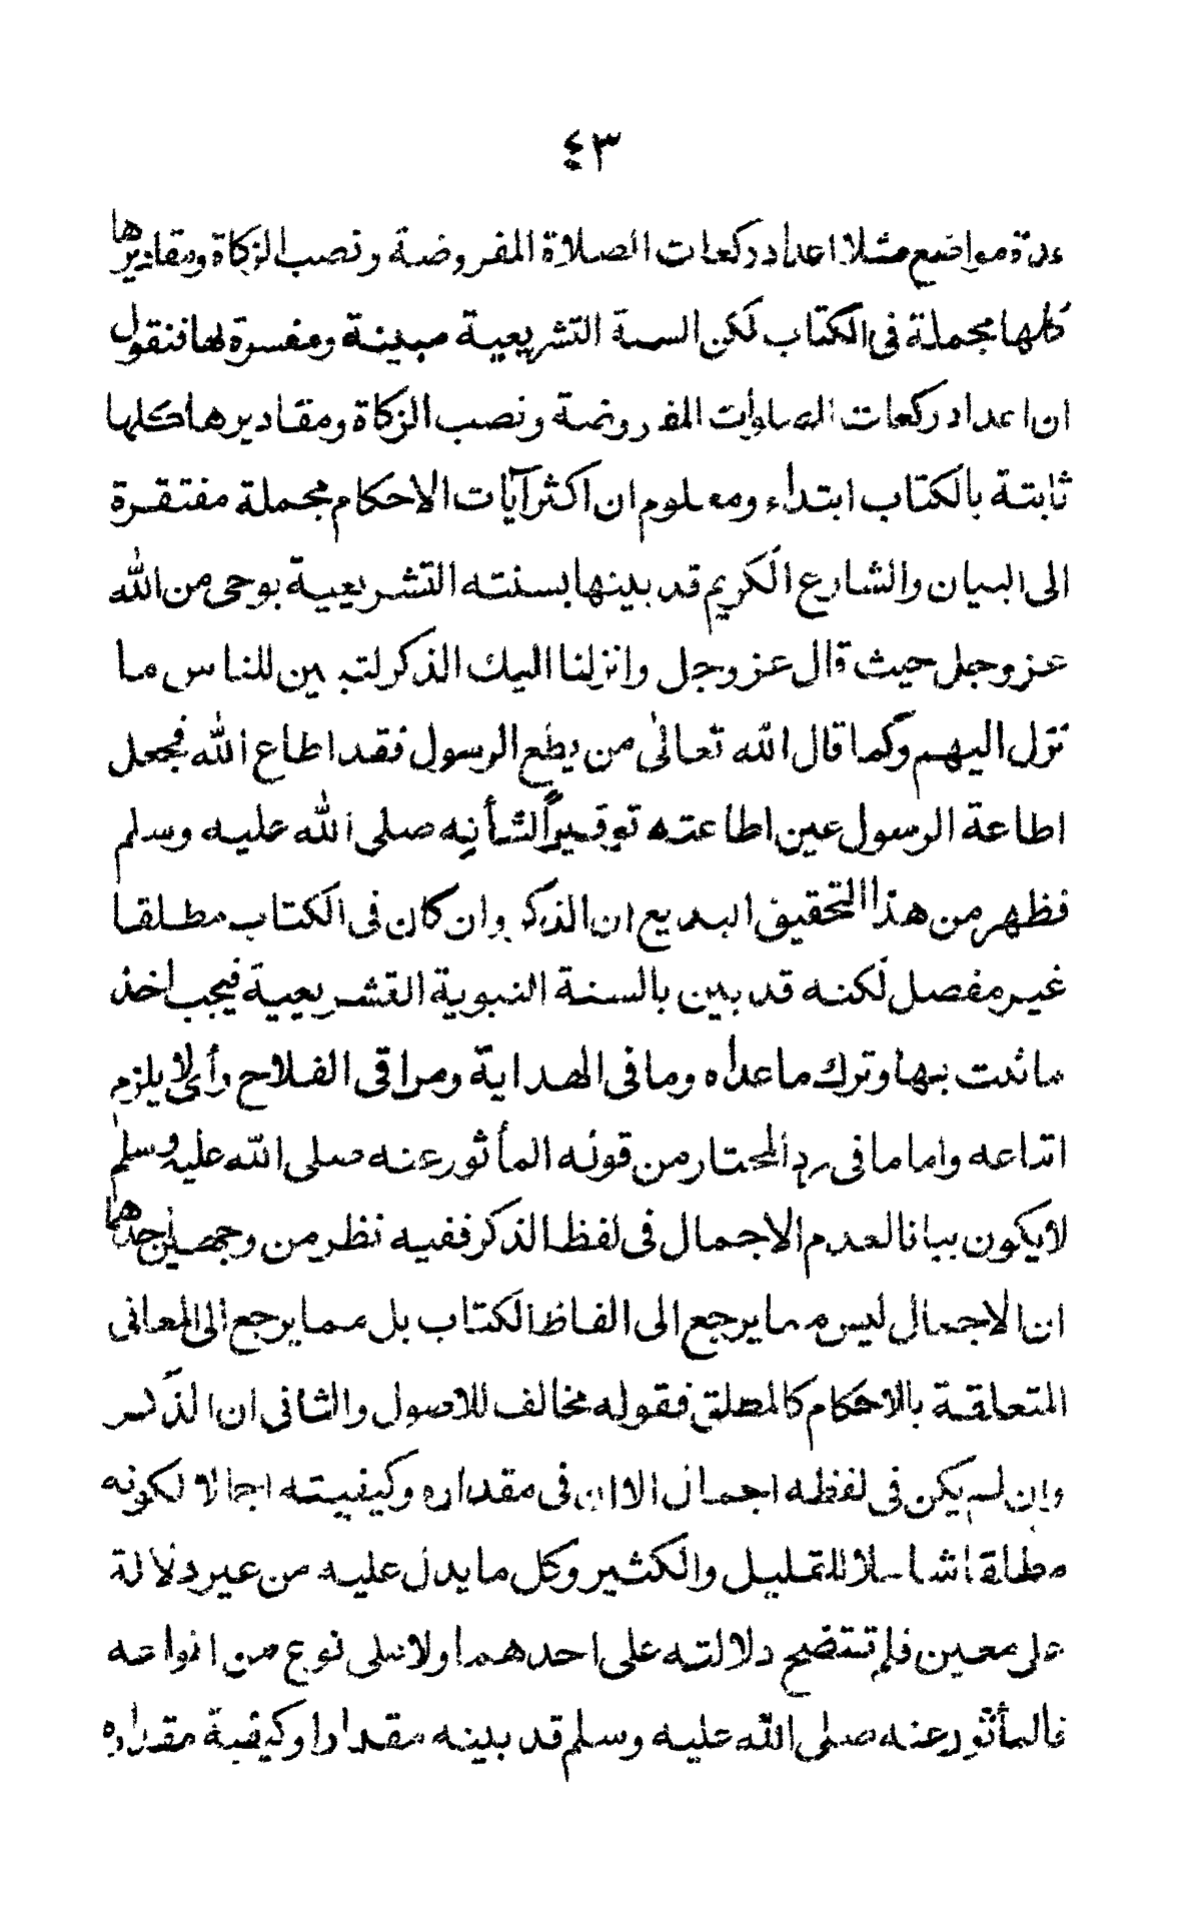 ٤٣
عدة مواضع مثلا اعداد ركعات الصلاة المفروضة ونصب الزكاة ومقاديرها
كلها مجملة فى الكتاب لكن السنة التشريعية مبينة ومفسرة لها فنقول
ان اعداد ركعات الصلوات المفروضة ونصب الزكاة ومقاديرها كلها
ثابتة بالكتاب ابتداء ومعلوم ان اكثر آيات الاحكام مجملة مفتقرة
الى البيان والشارع الكريم قد بينها بسنته التشريعية بوحى من الله
عز وجل حيث قال عز وجل وانزلنا اليك الذكر لتبين للناس ما
نزل اليهم وكما قال الله تعالى من يطع الرسول فقد اطاع الله فجعل
اطاعة الرسول عين اطاعته توقيرا لشأنه صلى الله عليه وسلم
فظهر من هذا التحقيق البديع ان الذكر وان كان فى الكتاب مطلقا
غير مفصل لكنه قد بين بالسنة النبوية التشريعية فيجب اخذ
ما ثبت بها وترك ما عداه وما فى الهداية ومراقى الفلاح وأى لا يلزم
اتباعه واما ما فى رد المحتار من قوله المأثور عنه صلى الله عليه وسلم
لا يكون بيانا لعدم الاجمال فى لفظ الذكر ففيه نظر من وجهين احدهما
ان الاجمال ليس مما يرجع الى الفاظ الكتاب بل مما يرجع الى المعانى
المتعلقة بالاحكام كالمطلق فقوله مخالف للاصول والثانى ان الذكر
وان لم يكن فى لفظه اجمال الا ان فى مقداره وكيفيته اجمالا لكونه
مطلقا شاملا للقليل والكثير وكل ما يدل عليه من غير دلالة
على معين فلم تتضح دلالته على احدهما ولا على نوع من انواعه
فالمأثور عنه صلى الله عليه وسلم قد بينه مقدارا وكيفية مقداره